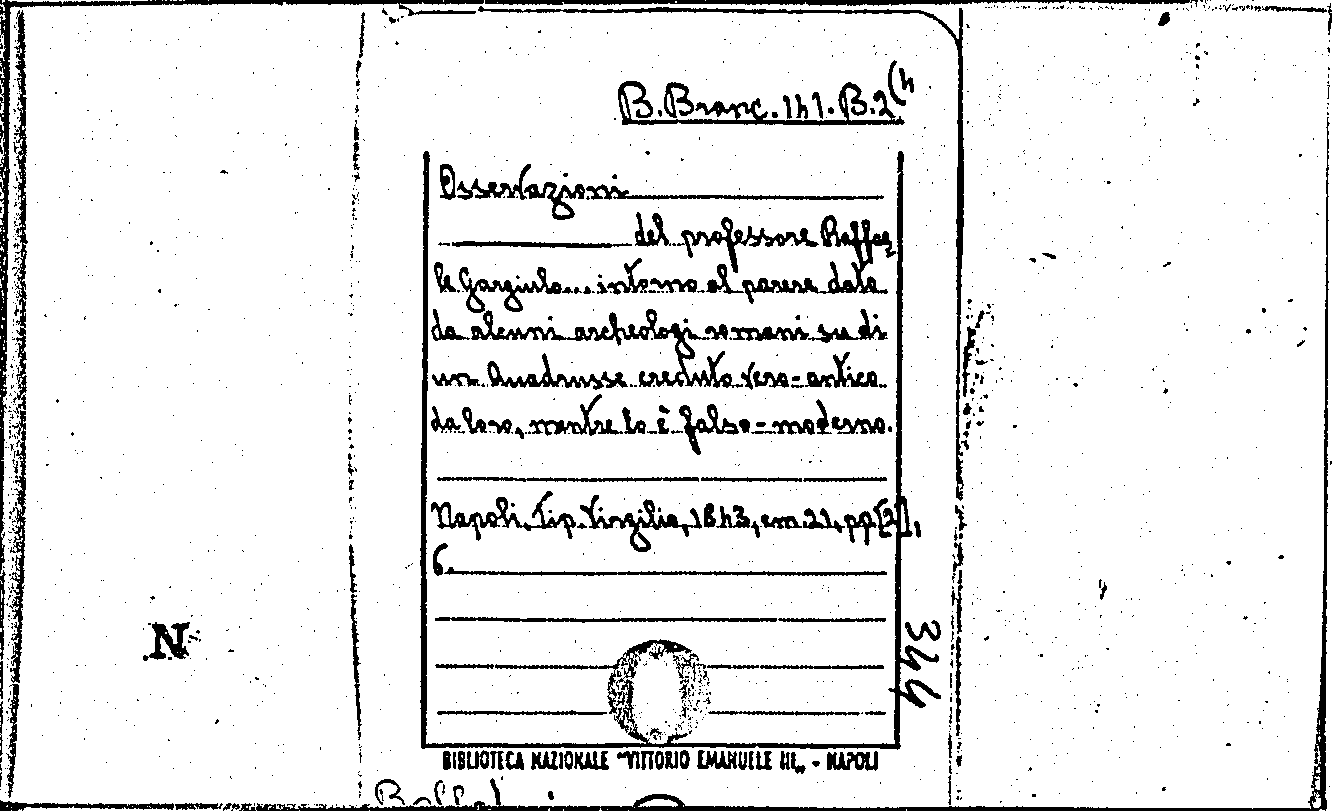 B. Branc. 141. B. 2(4
Osservazioni
del professore Raffae
le Gargiulo... intorno al parere dato
da alcuni archeologi romani su di
un Quadrusse creduto vero-antico
da loro, mentre lo è falso-moderno.
Napoli, Tip. Virgilio, 1843, cm. 21, pp. [2],
6.
344
N
BIBLIOTECA NAZIONALE "VITTORIO EMANUELE III„ - NAPOLI